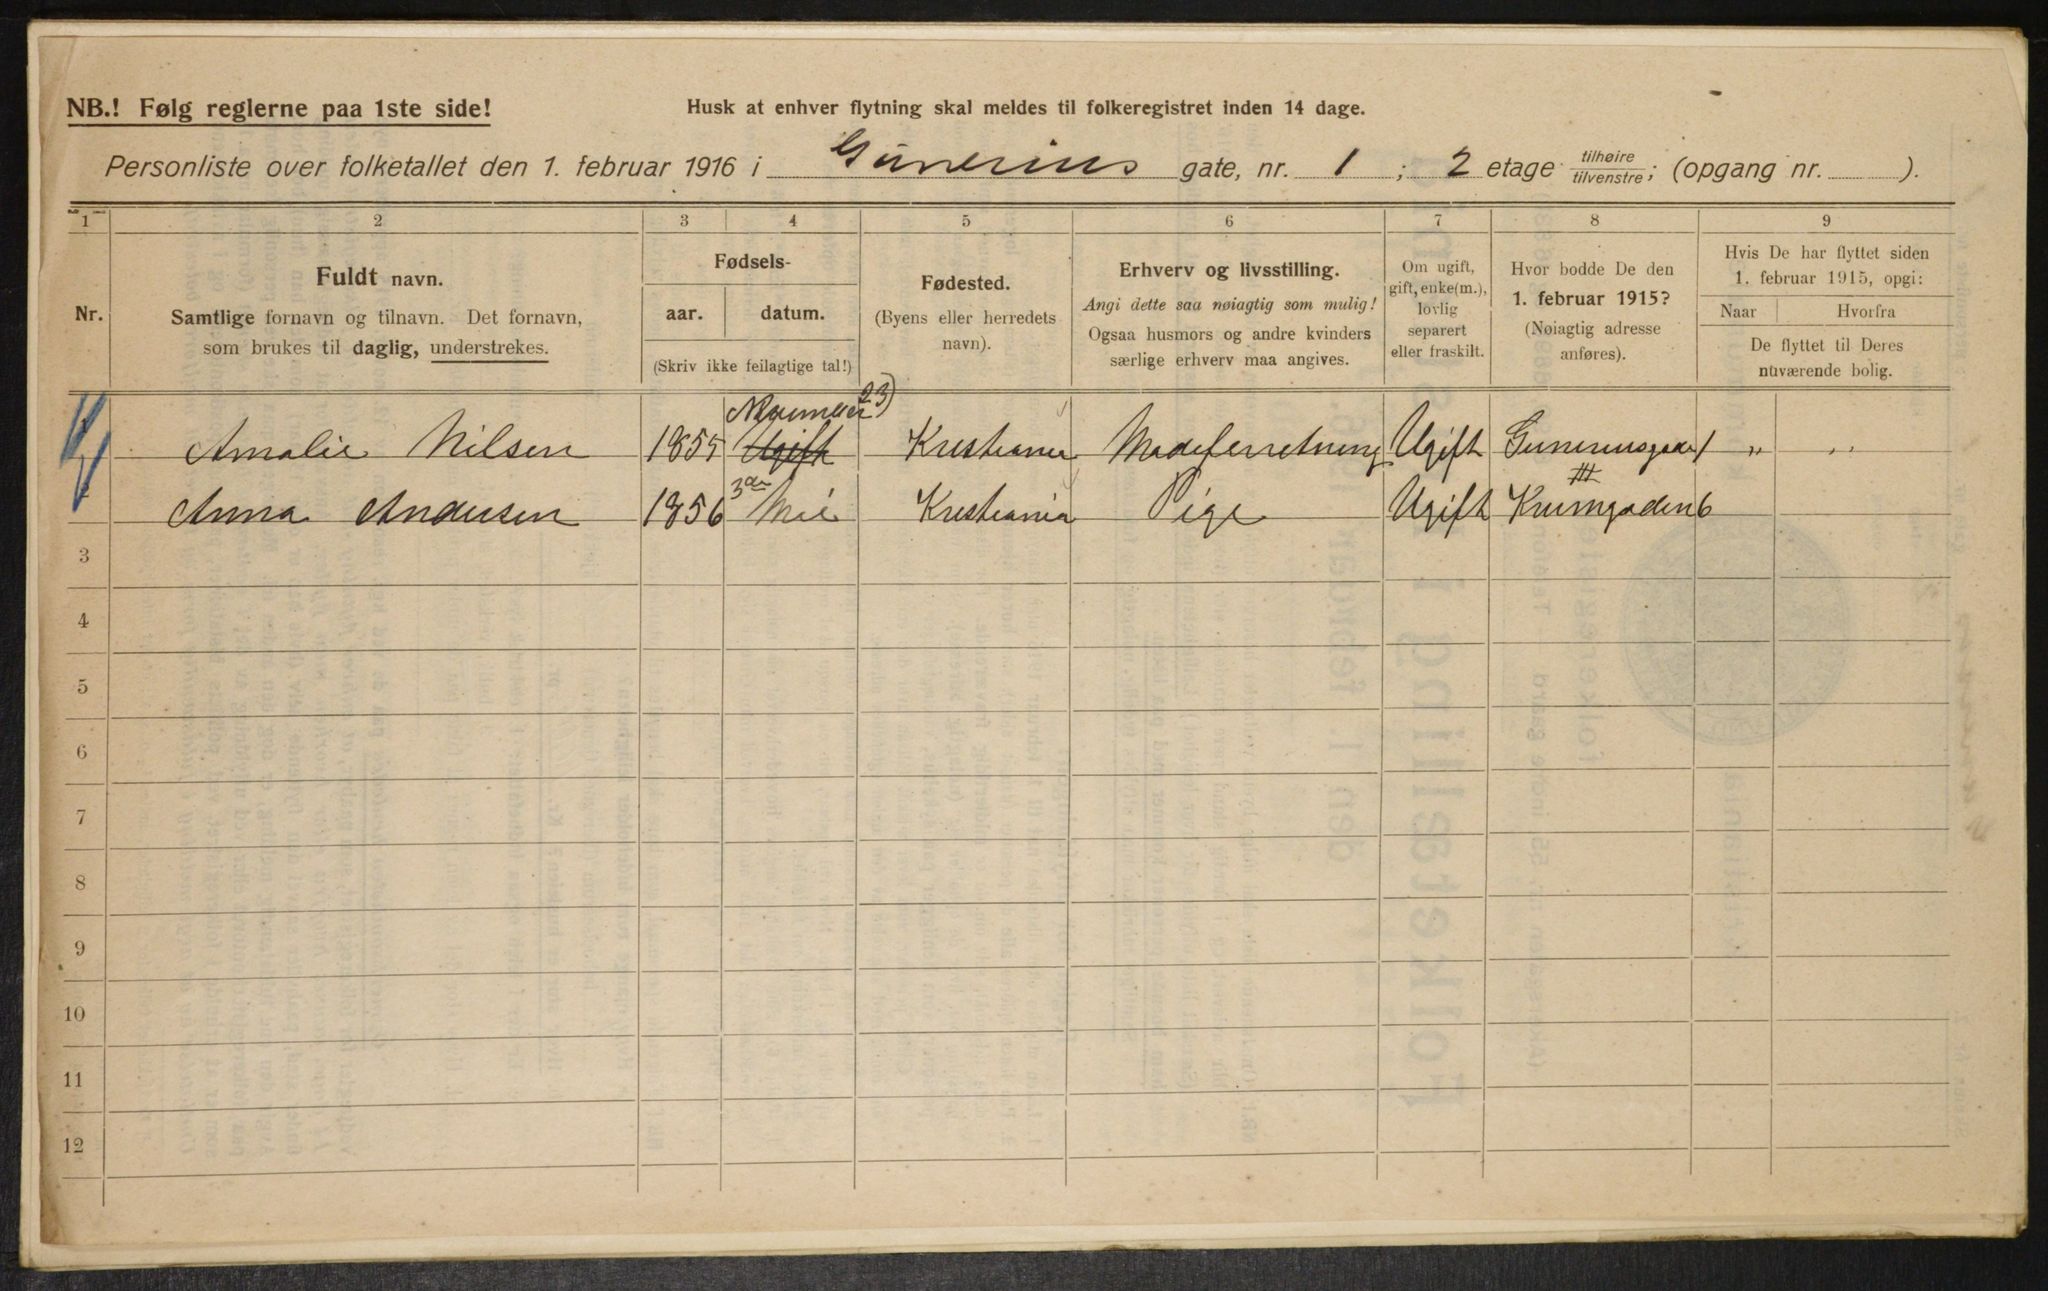 NB.! Følg reglerne paa 1ste side!
Husk at enhver flytning skal meldes til folkeregistret inden 14 dage.
Personliste over folketallet den 1. februar 1916 i Gunerius gate, nr. 1 ; 2 etage tilhøire tilvenstre; (opgang nr. ).
1 2 3 4 5 6 7 8 9
Nr.
Fuldt navn.
Samtlige fornavn og tilnavn. Det fornavn,
som brukes til daglig, understrekes.
Fødsels-
aar. datum.
(Skriv ikke feilagtige tal!)
Fødested.
(Byens eller herredets
navn).
Erhverv og livsstilling.
Angi dette saa nøiagtig som mulig!
Ogsaa husmors og andre kvinders
særlige erhverv maa angives.
Om ugift,
gift, enke(m.),
lovlig
separert
eller fraskilt.
Hvor bodde De den
1. februar 1915?
(Nøiagtig adresse
anføres).
Hvis De har flyttet siden
1. februar 1915, opgi:
Naar Hvorfra
De flyttet til Deres
nuværende bolig.
23)
Amalie Nilsen 1855 Ugift Kristiania Modeforretning Ugift Guneriusgade 1 " "
III
Anna Andersen 1856 3die Mai Kristiania Pige Ugift Krumgaden 6
3
4
5
6
7
8
9
10
11
12